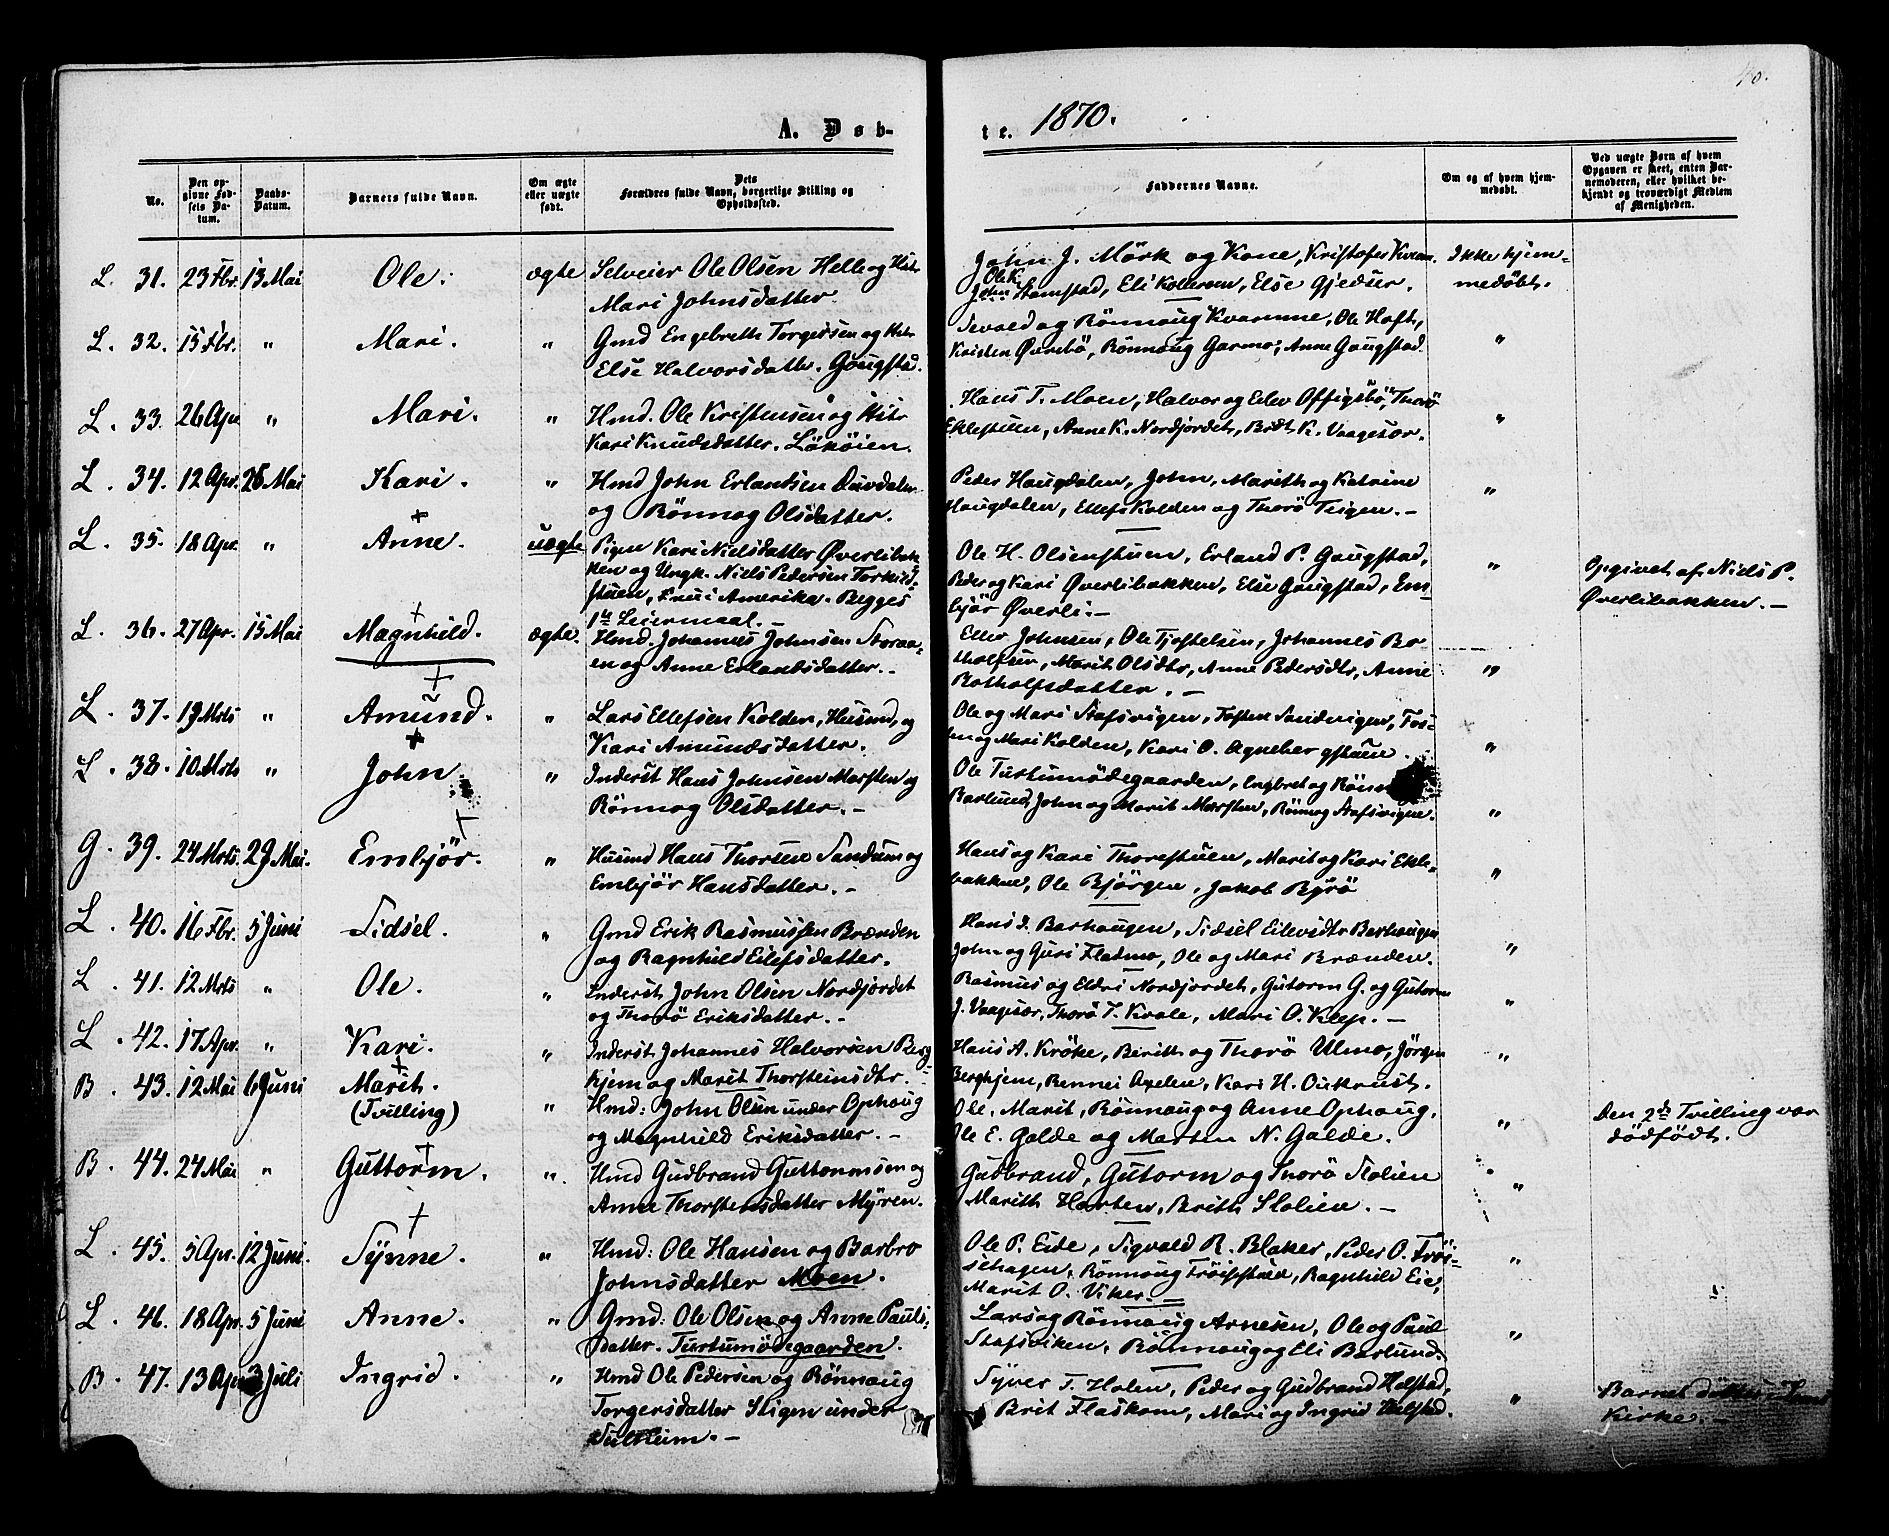 40.
A. Døb-
te. 1870.
No.
Den op-
givne Fød-
sels Da-
tum.
Daabs-
Datum.
Barnets fulde Navn.
Om ægte
eller uægte
født.
Dets
Forældres fulde Navn, borgerlige Stilling og
Opholdssted.
Faddernes Navne.
Om og af hvem hjem-
medøbt.
Ved uægte Børn af hvem
Opgaven er skeet, enten Bar-
nemoderen, eller hvilket be-
kjendt og troværdigt Medlem
af Menigheden.
L. 31. 23 Fbr. 13 Mai Ole. ægte Selveier Ole Olsen Helle og Hstr
Mari Johnsdatter.
John J. Mörk og Kone, Kristofer Kvam.
Ole K.
John Stamstad, Eli Kollersen, Else Gjedser.
Ikke hjem-
medöbt.
L. 32. 15 Fbr. „ Mari. „ Gmd Engebreth Torgersen og Hstr
Else Halvorsdatter. Gaugstad.
Sevald og Rönnoug Kvamme, Ole Hoft,
Kristen Øvrebö, Rönnoug Garmo, Anne Gaugstad. „
L. 33. 26 Apr „ Mari. „ Hmd. Ole Kristensen og Hstr
Kari Knudsdatter. Lököien.
Hans T. Moen, Halvor og Eilev Offigsbö, Thorö
Eklestuen, Anne K. Nordjordet, Brit K. Vaagesar. „
L. 34. 12 Apr. 26 Mai Kari. „ Hmd John Erlandsen Duvdalen
og Rönnog Olsdatter.
Peder Haugdalen, John, Marith og Katrine
Haugdalen, Ellef Kolden og Thorö Teigen. – „
L. 35. 18 Apr. „ Anne. uægte Pigen Kari Nielsdatter Øverlibak-
ken og Ungk. Niels Pedersen Torkild-
stuen, Enu i Amerika. Begges
1ste Leiermaal. –
Ole H. Olsenstuen, Erland P. Gaugstad,
Peder og Kari Øverlibakken, Else Gaugstad, Em-
björ Øverli. – „
Opgivet af Niels P.
Øverlibakken. –
L. 36. 27 Apr. 15 Mai Magnhild. ægte. Hmd. Johannes Johnsen Storaa-
en og Anne Erlandsdatter. –
Ellev Johnsen, Ole Tjostelsen, Johannes Bo-
tholfsen, Marit Olsdtr, Anne Pedersdtr, Anne
Botholfsdatter. – „
L. 37. 19 Mrts „ Amund. „ Lars Ellefsen Kolden, Husmd, og
Kari Amundsdatter.
Ole og Mari Stafsvigen, Tosten Sandvigen, Tos-
ten og Mari Kolden, Kari O. Agnebergstuen. „
L. 38. 10 Mrts „ John. „ Inderst Hans Johnsen Marsten og
Rönnog Olsdatter. –
Ole Turtumödegaarden, Engbret og Rönn
Barlund, John og Marit Marsten, Rönnog Stafsvigen. „
G. 39. 24 Mrts. 29 Mai. Embjör. „ Husmd Hans Thorsen Sandum og
Embjör Hansdatter. –
Hans og Kari Thorestuen, Marit og Kari Ekle-
bakken, Ole Björgen, Jakob Byrö „
L. 40. 16 Fbr. 5 Juni Sidsel. „ Gmd Erik Rasmussen Brænden
og Ragnhild Eilefsdatter.
Hans J. Barhaugen, Sidsel Eilevsdtr Barhaugen
John og Guri Flatmo, Ole og Mari Brænden. „
L. 41. 12 Mrts „ Ole. „ Inderst John Olsen Nordjordet
og Thorö Eriksdatter. –
Rasmus og Eldri Nordjordet, Gutorm G. og Gutorm
J. Vaagesar, Thorö T. Kvale, Mari O. Klep. – „
L. 42. 17 Apr. „ Kari. „ Inderst Johannes Halvorsen Berg-
kjem og Marit Thorsteinsdtr. –
Hans A. Kröke, Berith og Thorö Ulmo, Jörgen
Berghjem, Rennei Axelen, Kari H. Oukrust. „
B. 43. 12 Mai 6 Juni Marit.
(Tvilling) „ Hmd: John Olsen under Ophaug
og Magnhild Eriksdatter. –
Ole, Marit, Rönnaug og Anne Ophaug,
Ole E. Galde og Marten N. Galde. „
Den 2den Tvilling var
dödfödt.
B. 44. 24 Mai „ Guttorm. „ Hmd Gudbrand Guttormsen og
Anne Thorstensdatter Myren.
Gudbrand, Gutorm og Thorö Slolien
Marith Horten, Brith Slolien. – „
L. 45. 5 Apr. 12 Juni. Synne. „ Hmd: Ole Hansen og Barbro
Johnsdatter Moen.
Ole P. Eide, Sigvald R. Blaker, Peder O. Tröi-
sehagen, Rönnoug Tröisstuen, Ragnhild Eie,
Marit O. Viker. – „
L. 46. 18 Apr. 5 Juni Anne. „ Gmd: Ole Olsen og Anne Pauls-
datter. Turtumödegaarden.
Lars og Rönnoug Arnesen, Ole og Paul
Stafsviken, Rönnoug og Eli Barlund. „
B. 47. 13 Apr 3 Juli Ingrid. „ Hmd Ole Pedersen og Rönnaug
Torgersdatter Stigen under
Sulheim. –
Syver T. Holen, Peder og Gudbrand Holstad,
Brit Flaskom, Mari og Ingrid Holstad. „
Barnet döbt i
Kirke.